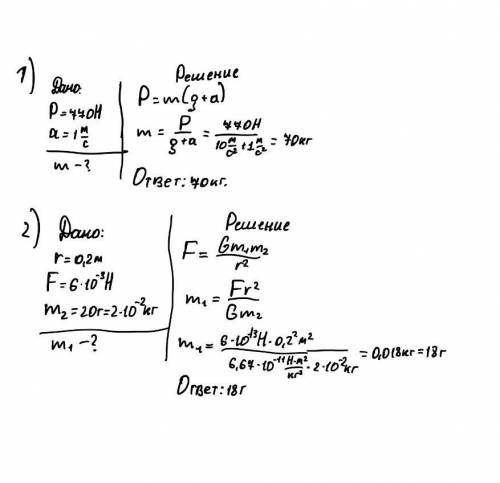 1) Дано:
P=770Н
a=1 м/с
m-?
Решение
P=m(g+a)
m = P/(g+a) = 770Н/(10 м/с² + 1 м/с²) = 70кг
Ответ: 70кг.
2) Дано:
r=0,2м
F=6·10⁻³Н
m₂=20г=2·10⁻²кг
m₁-?
Решение
F= Gm₁m₂/r²
m₁ = Fr²/Gm₂
m₁= 6·10⁻¹³Н·0,2²м²/(6,67·10⁻¹¹ Н·м²/кг² · 2·10⁻²кг) = 0,018кг=18г
Ответ: 18г